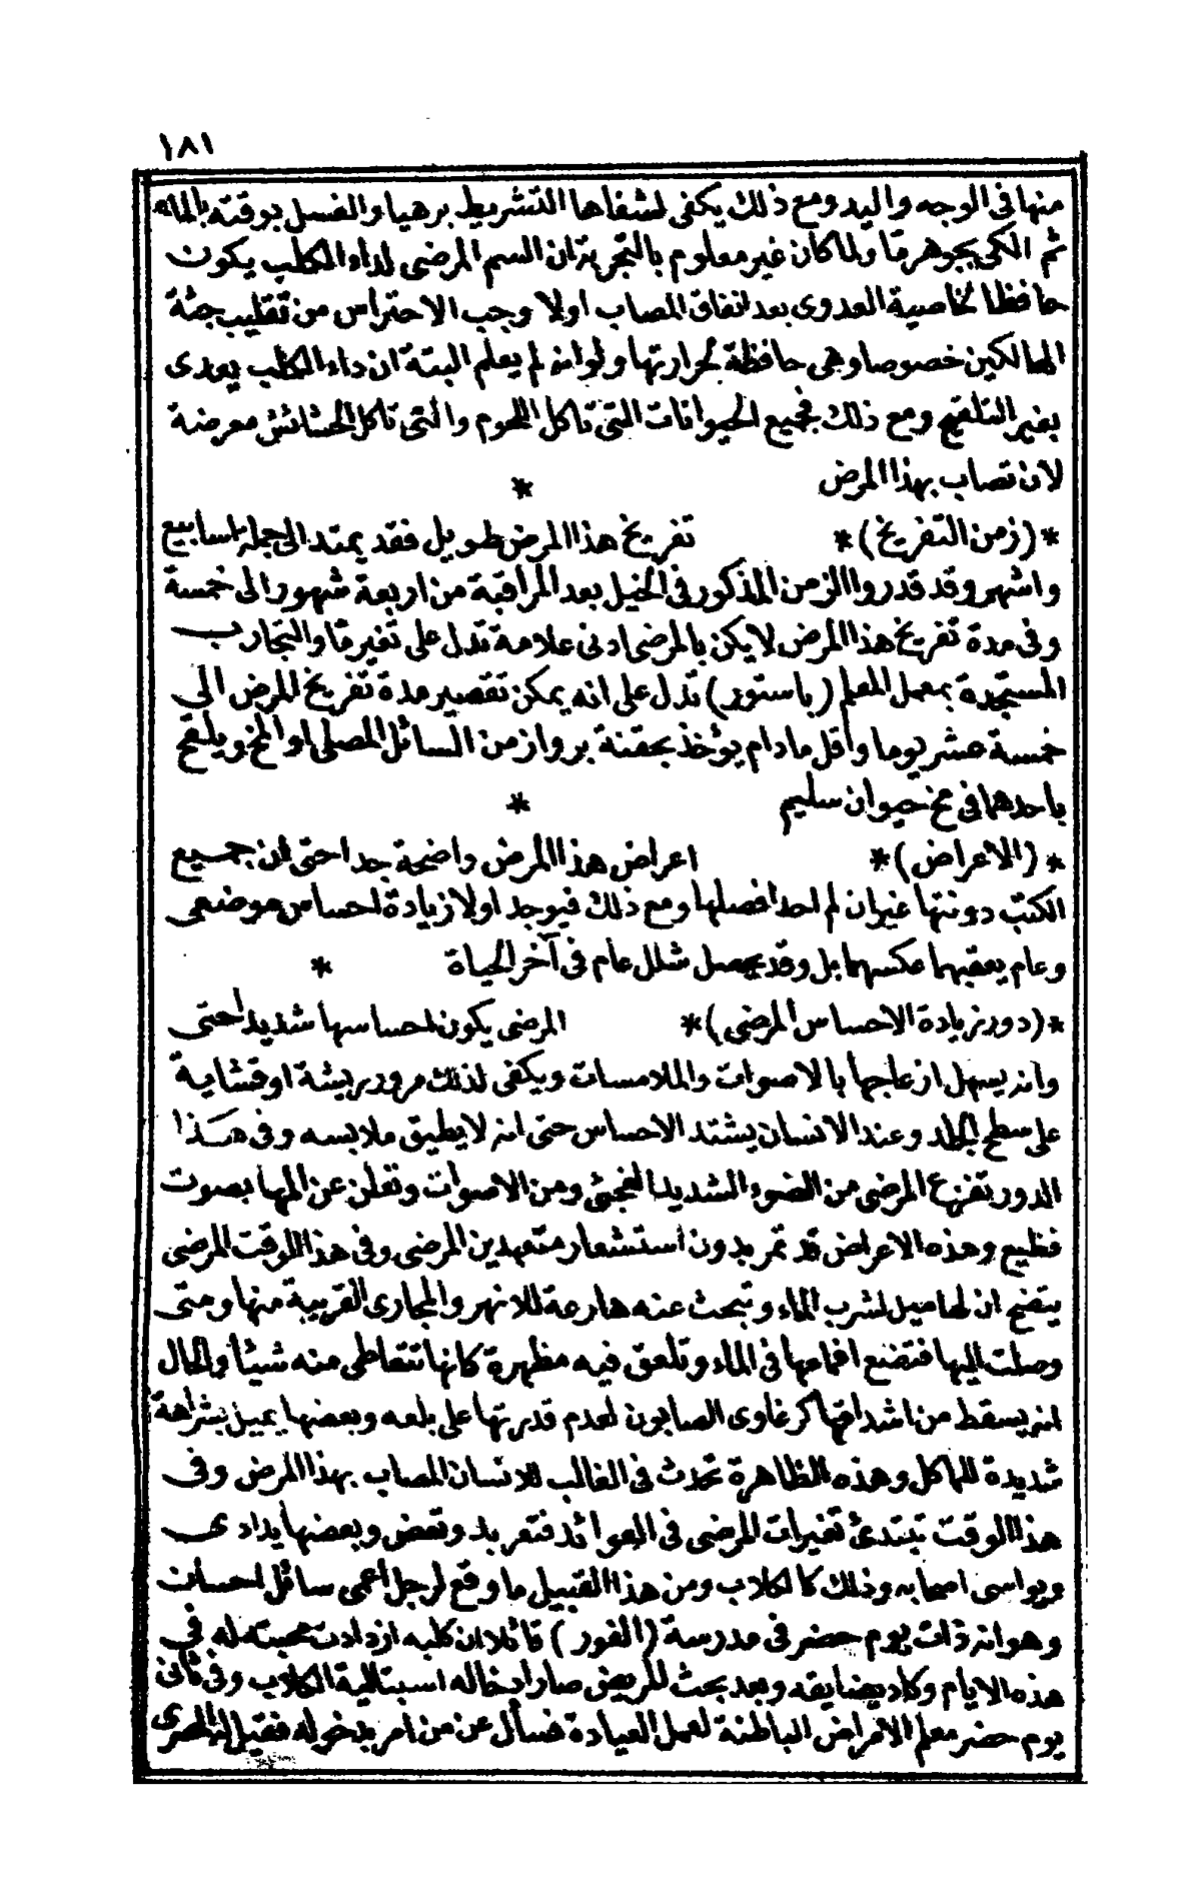 ١٨١
منها فى الوجه واليد ومع ذلك يكفى لشفاها التشريط برهيا والغسل بوقته بالماء
ثم الكى بجوهر ما ولما كان غير معلوم بالتجربة ان السم المرضى لداء الكلب يكون
حافظا لخاصية العدوى بعد انفاق المصاب اولا وجب الاحتراس من تقليب جثة
الهالكين خصوصا وهى حافظة لحرارتها ولو انه لم يعلم البتة ان داء الكلب يعدى
بغير التلقيح ومع ذلك فجميع الحيوانات التى تاكل اللحوم والتى تاكل الحشائش معرضة
لان تصاب بهذا المرض *
*(زمن التفريخ)* تفريخ هذا المرض طويل فقد يمتد الى جملة اسابيع
واشهر وقد قدروا الزمن المذكور فى الخيل بعد المراقبة من اربعة شهور الى خمسة
وفى مدة تفريخ هذا المرض لا يكن بالمرضى ادنى علامة تدل على تغير ما والتجارب
المستجدة بمعمل المعلم (باستور) تدل على انه يمكن تقصير مدة تفريخ المرض الى
خمسة عشر يوما واقل ما دام يؤخذ بحقنة برواز من السائل المصلى او المخ ويلقح
باحدهما فى مخ حيوان سليم *
*(الاعراض)* اعراض هذا المرض واضحة جدا حتى ان جميع
الكتب دونتها غير ان لم احد افصلها ومع ذلك فيوجد اولا زيادة احساس موضعى
وعام يعقبهما عكسهما بل وقد يحصل شلل عام فى آخر الحياة *
*(دور زيادة الاحساس المرضى)* المرضى يكون احساسها شديدا حتى
وانه يسهل ازعاجها بالاصوات والملامسات ويكفى لذلك مرور بريشة او قشاية
على سطح الجلد وعند الانسان يشتد الاحساس حتى انه لا يطيق ملابسه وفى هذا
الدور تفزع المرضى من الضوء الشديد الفجئى ومن الاصوات وتعلن عن المها بصوت
فظيع وهذه الاعراض قد تمر بدون استشعار متعهدين المرضى وفى هذا الوقت المرضى
يتضح ان لها ميل لشرب الماء وتبحث عنه هارعة للانهر والمجارى القريبة منها ومتى
وصلت اليها فتضع افمامها فى الماء وتلعق فيه مظهرة كانها تتعاطى منه شيئا والحال
انه يسقط من اشداقها كرغاوى الصابون لعدم قدرتها على بلعه وبعضها يميل بشراهة
شديدة للماكل وهذه الظاهرة تحدث فى الغالب للانسان المصاب بهذا المرض وفى
هذا الوقت تبتدئ تغيرات المرضى فى العوائد فتعربد وتعض وبعضها يدادى
ويواسى اصحابه وذلك كالكلاب ومن هذا القبيل ما وقع لرجل أعمى سائل احسان
وهو انه ذات يوم حضر فى مدرسة (الفور) قائلا ان كلبه ازدادت محبته له فى
هذه الايام وكاد يضايقه وبعد بحث للمريض صار ادخاله اسبتالية الكلاب وفى ثانى
يوم حضر معلم الامراض الباطنة لعمل العيادة فسأل عن من امر بدخوله فقيل له